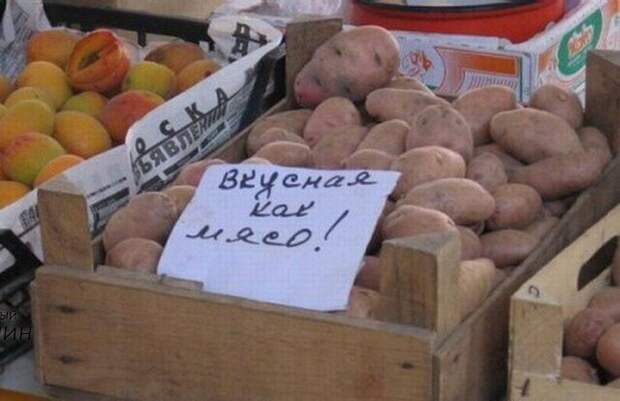 вкусная
как
мясо!
оска
бъявлений